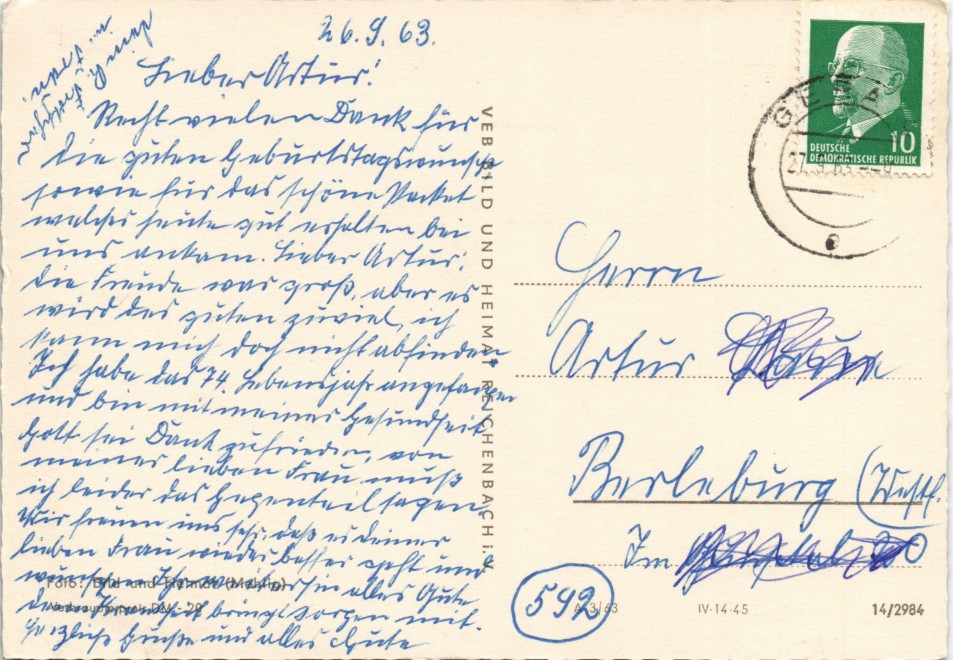 26.9.63.
Lieber Artur!
Recht vielen Dank für
die guten Geburtstagswünsche
sowie für das schöne Packet
welches heute gut erhalten bei
uns ankam. Lieber Artur!
die Freude war groß, aber es
wird des guten zuviel, ich
kann mich doch nicht abfinden
Ich habe das 74. Lebensjahr angefangen
und bin mit meiner Gesundheit
Gott sei Dank zufrieden, von
meiner lieben Frau muß
ich leider das Gegenteil sagen
Wir freuen uns sehr, daß es deiner
lieben Frau wieder besser geht und
wünschen Ihr weiterhin alles Gute
denn Krankheit bringt Sorgen mit.
Herzliche Grüße und alles Gute
dein
u. Frau.
VEB BILD UND HEIMAT REICHENBACH i. V.
Foto: Bild und Heimat (Mehlig)
Verbraucherpreis DM -,20
DEUTSCHE
DEMOKRATISCHE REPUBLIK
10
GERA
27.9.63
Herrn
Artur
Berleburg (Westf.
Im 20
592
A 3/63
IV-14-45
14/2984